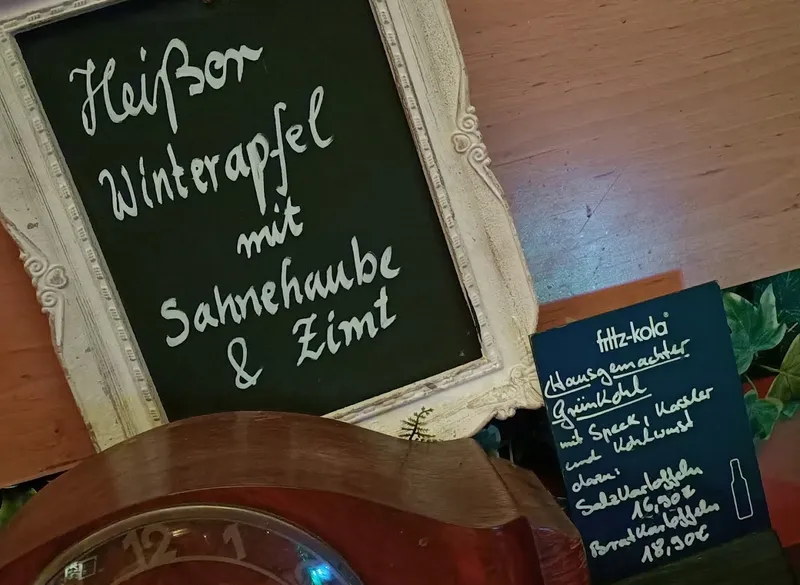 Heißer
Winterapfel
mit
Sahnehaube
& Zimt
fritz-kola
Hausgemachter
Grünkohl
mit Speck, Kassler
und Kohlwurst
dazu:
Salzkartoffeln
16,90€
Bratkartoffeln
18,90€
12 1